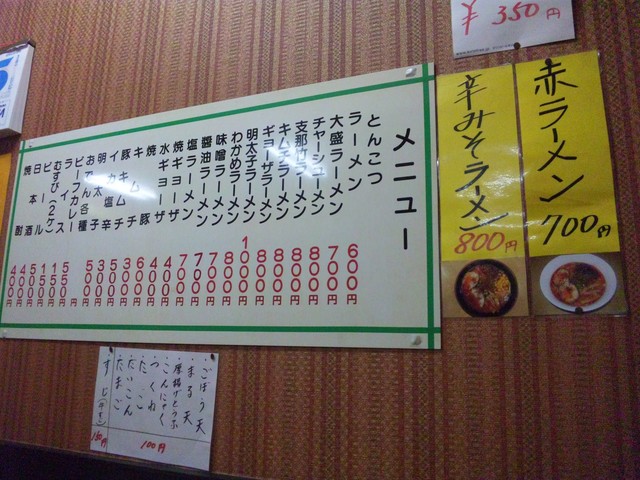 ¥ 350円
赤ラーメン 700円
辛みそラーメン 800円
メニュー
とんこつ
ラーメン 600円
大盛ラーメン 700円
チャーシューメン 800円
支那竹ラーメン 800円
キムチラーメン 800円
ギョーザラーメン 800円
明太子ラーメン 1000円
わかめラーメン 800円
味噌ラーメン 700円
醤油ラーメン 700円
塩ラーメン 700円
焼ギョーザ 400円
水ギョーザ 400円
焼豚 600円
キムチ 300円
豚キムチ 500円
イカ塩辛
明太子 500円
おでん各種
ビーフカレー 円
ライス
むすび(2ケ)
ビール
日本酒 400円
焼酎 400円
・ごぼう天
・まる天
・厚揚げとうふ
・こんにゃく
・つくね
・たこ
・だいこん
・たまご
100円
すじ(牛すじ) 150円
5